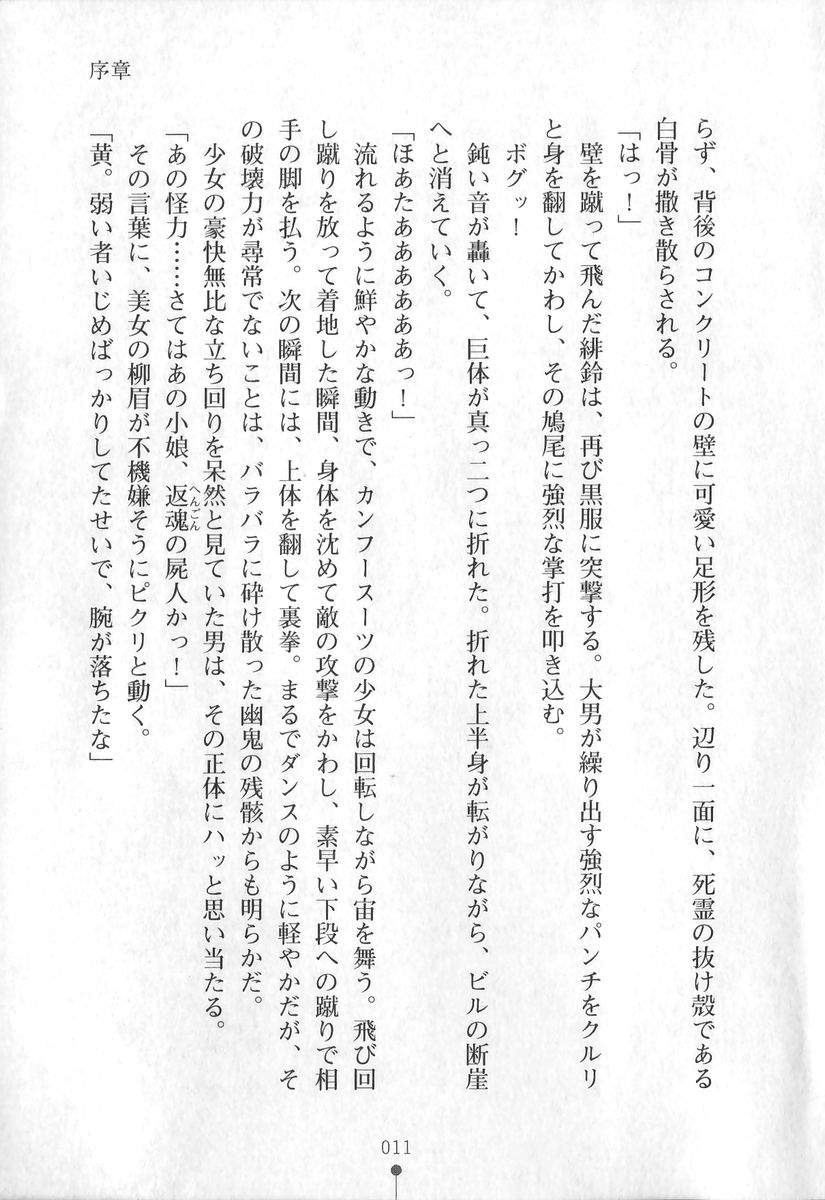 序章
らず、背後のコンクリートの壁に可愛い足形を残した。辺り一面に、死霊の抜け殻である
白骨が撒き散らされる。
「はっ！」
壁を蹴って飛んだ緋鈴は、再び黒服に突撃する。大男が繰り出す強烈なパンチをクルリ
と身を翻してかわし、その鳩尾に強烈な掌打を叩き込む。
ボグッ！
鈍い音が轟いて、巨体が真っ二つに折れた。折れた上半身が転がりながら、ビルの断崖
へと消えていく。
「ほあたああああああっ！」
流れるように鮮やかな動きで、カンフースーツの少女は回転しながら宙を舞う。飛び回
し蹴りを放って着地した瞬間、身体を沈めて敵の攻撃をかわし、素早い下段への蹴りで相
手の脚を払う。次の瞬間には、上体を翻して裏拳。まるでダンスのように軽やかだが、そ
の破壊力が尋常でないことは、バラバラに砕け散った幽鬼の残骸からも明らかだ。
少女の豪快無比な立ち回りを呆然と見ていた男は、その正体にハッと思い当たる。
「あの怪力……さてはあの小娘、返魂の屍人かっ！」
へんごん
その言葉に、美女の柳眉が不機嫌そうにピクリと動く。
「黄。弱い者いじめばっかりしてたせいで、腕が落ちたな」
011